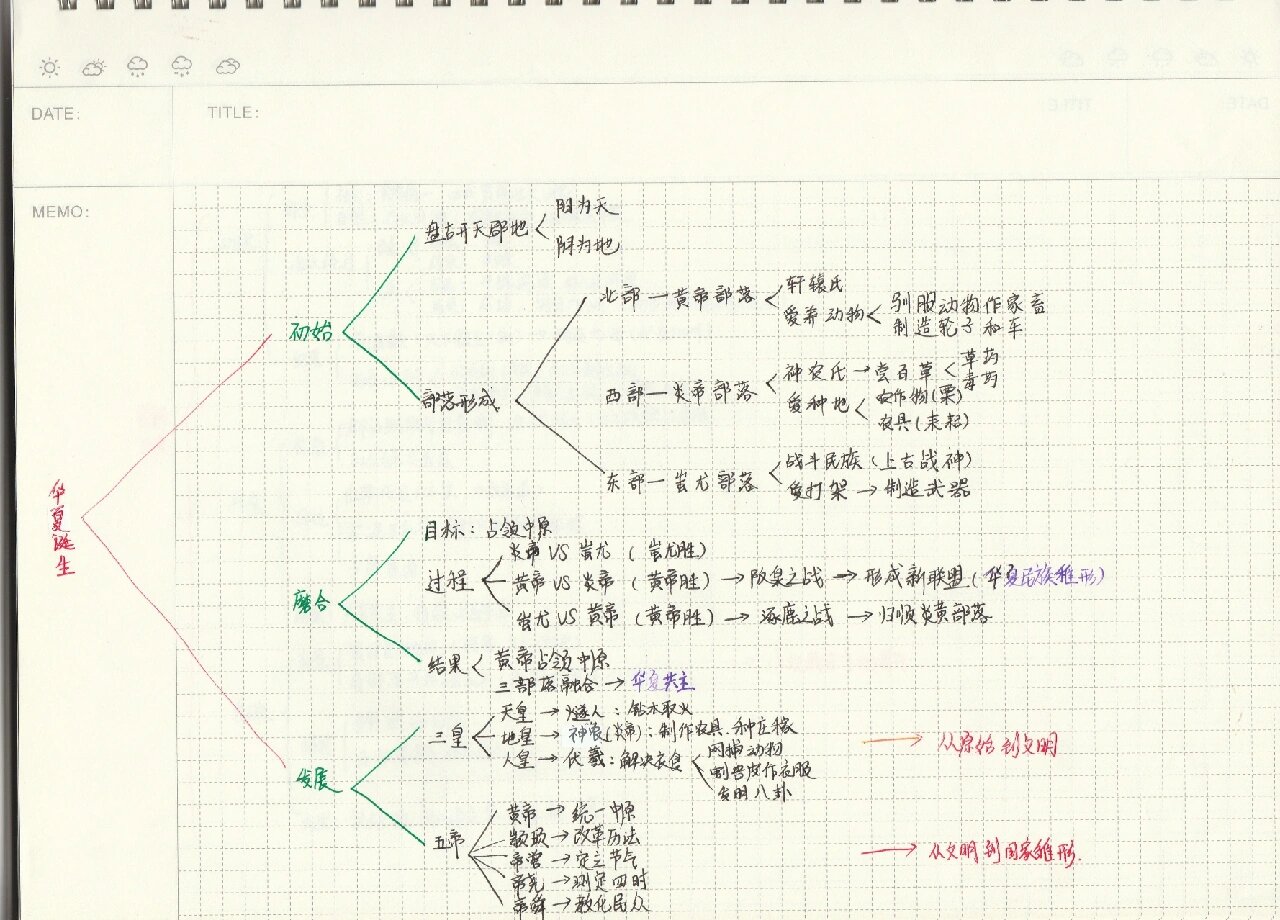 DATE:
TITLE:
MEMO:
华夏诞生
初始
盘古开天辟地
阳为天
阴为地
部落形成
北部—黄帝部落
轩辕氏
爱养动物
驯服动物作家畜
制造轮子和车
西部—炎帝部落
神农氏→尝百草
草药
毒药
爱种地
农作物(粟)
农具(耒耜)
东部—蚩尤部落
战斗民族(上古战神)
爱打架→制造武器
磨合
目标:占领中原
过程
炎帝VS蚩尤(蚩尤胜)
黄帝VS炎帝(黄帝胜)→阪泉之战→形成新联盟(华夏民族雏形)
蚩尤VS黄帝(黄帝胜)→涿鹿之战→归顺炎黄部落
结果
黄帝占领中原
三部落融合→华夏共主
发展
三皇
天皇→燧人:钻木取火
地皇→神农(炎帝):制作农具、种庄稼
人皇→伏羲:解决衣食
网捕动物
制兽皮作衣服
发明八卦
→从原始到文明
五帝
黄帝→统一中原
颛顼→改革历法
帝喾→定立节气
帝尧→测定四时
帝舜→教化民众
→从文明到国家雏形.